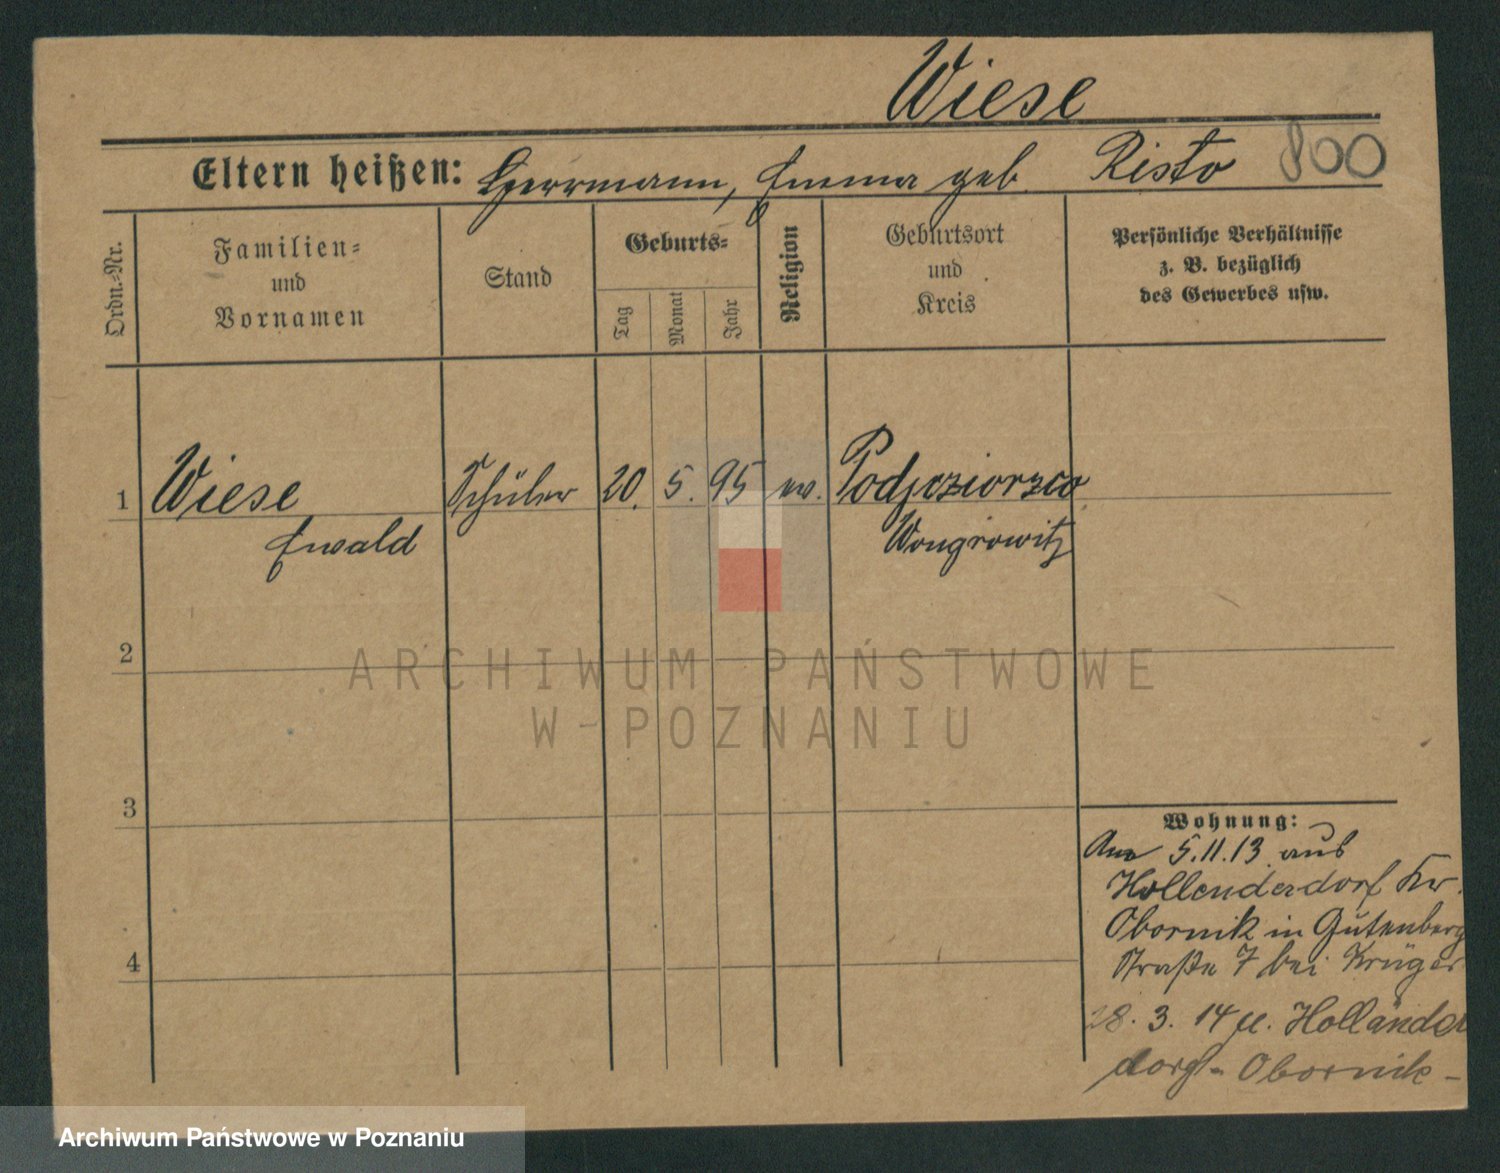 Wiese
Eltern heißen: Herrmann, Emma geb. Risto 800
Ordn.-Nr.
Familien-
und
Vornamen
Stand
Geburts-
Tag
Monat
Jahr
Religion
Geburtsort
und
Kreis
Persönliche Verhältnisse
z. B. bezüglich
des Gewerbes usw.
1 Wiese Schüler 20. 5. 95 ev.
Ewald Wongrowitz
2
3
4
Wohnung:
Am 5.11.13 aus
Hollenderdorf Kr.
Obornik in Gutenberg
Straße 7 bei Krüger
28. 3. 14 Holländer
dorf - Obornik -
ARCHIWUM PAŃSTWOWE
W POZNANIU
Archiwum Państwowe w Poznaniu